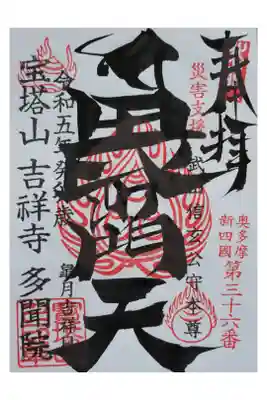 奉拝
奥多摩
新四國
第三十六番
災害支援
武田信玄公守本尊
毘沙門天
令和五年癸卯歳
皐月吉祥日
宝塔山 吉祥寺 多聞院